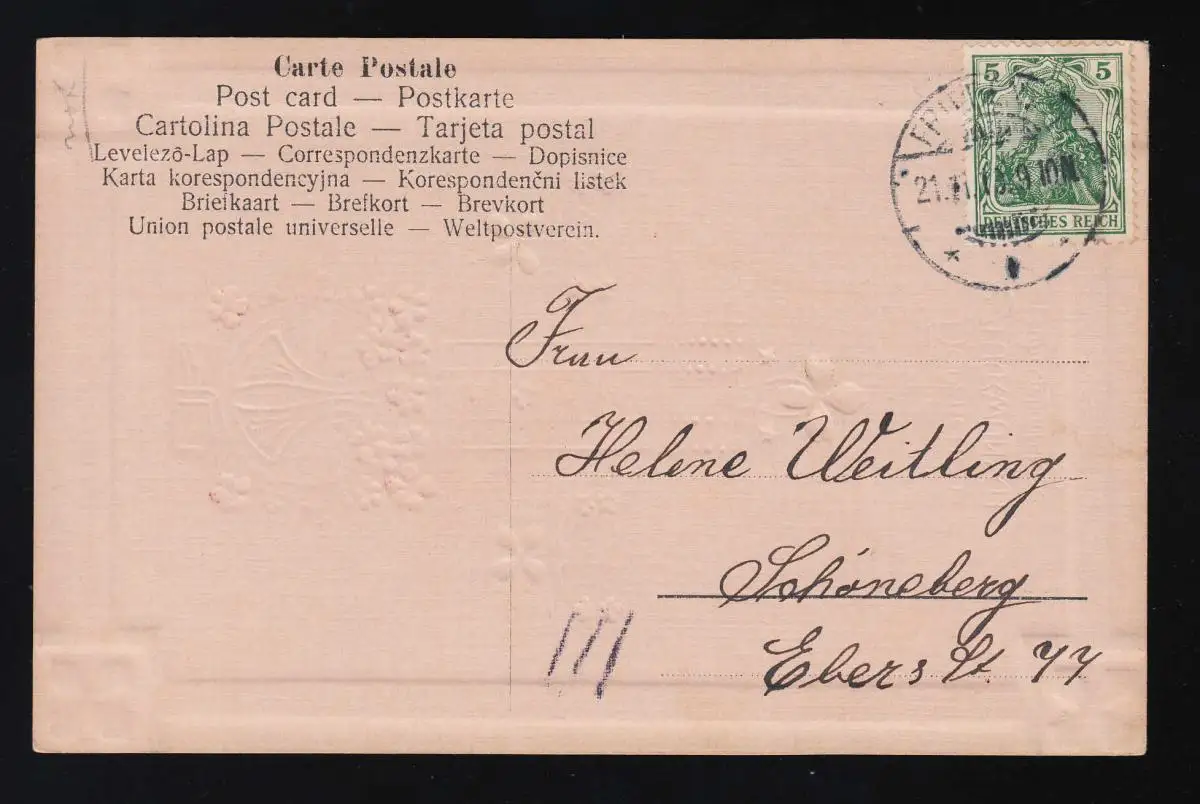 Carte Postale
Post card — Postkarte
Cartolina Postale — Tarjeta postal
Levelezô-Lap — Correspondenzkarte — Dopisnice
Karta korespondencyjna — Korespondenčni listek
Briefkaart — Brefkort — Brevkort
Union postale universelle — Weltpostverein.
5 5
DEUTSCHES REICH
Frau
Helene Weitling
Schöneberg
Ebers St. 77